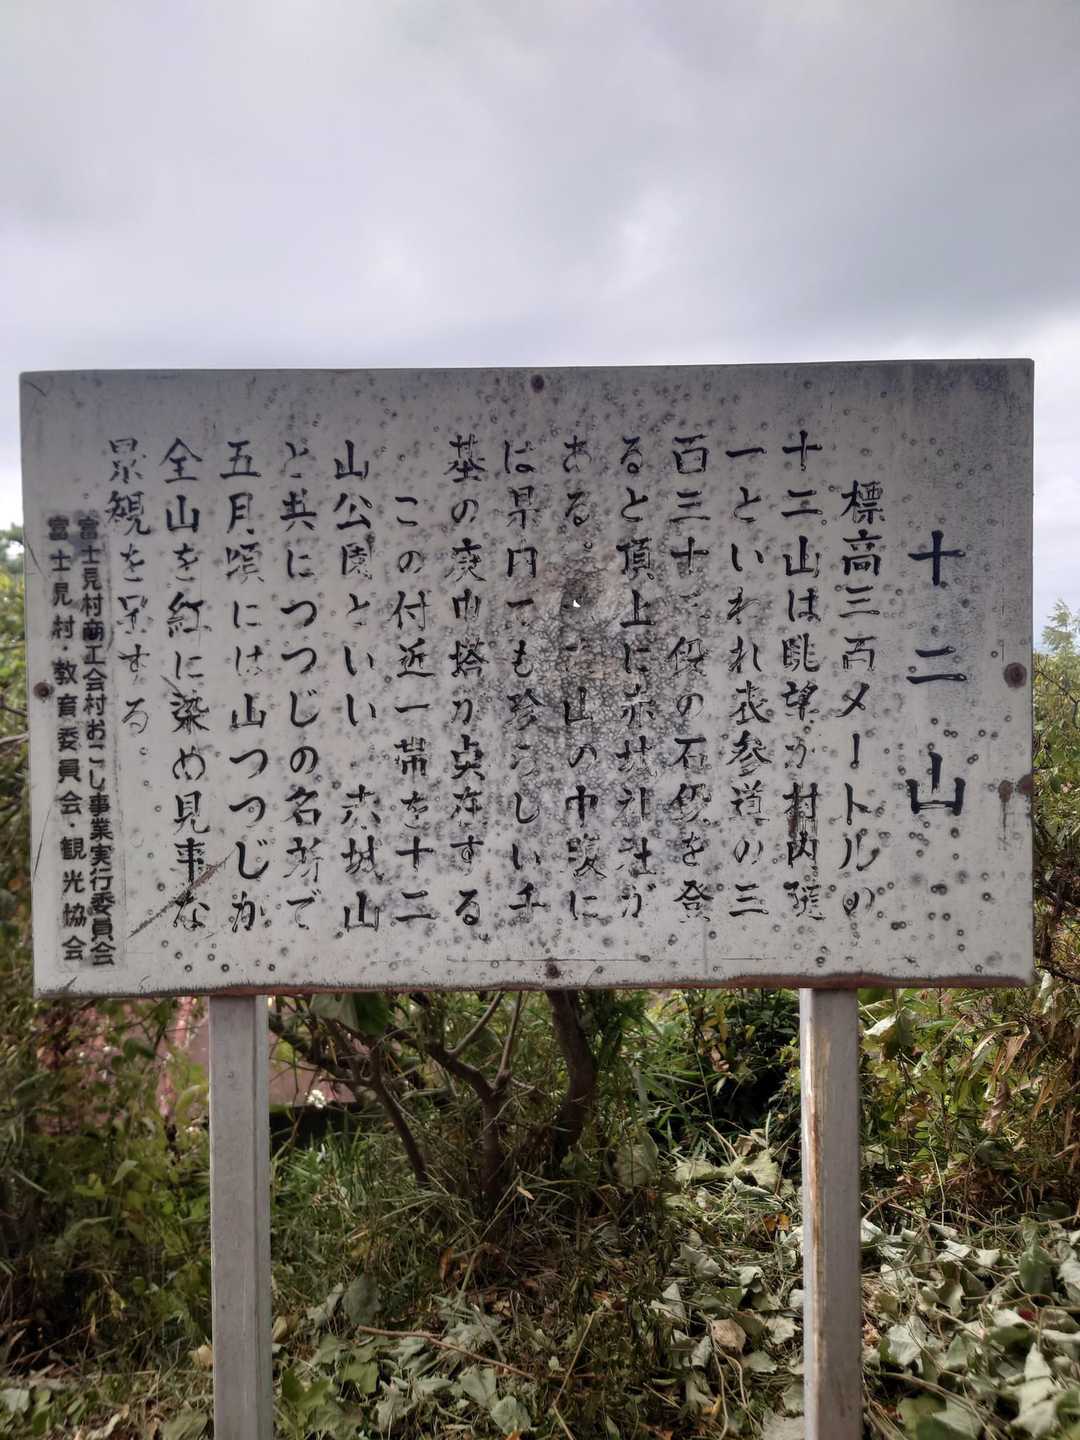 十二山
標高三百メートルの
十二山は眺望が村内随
一といわれ表参道の三
百三十 段の石段を登
ると頂上に赤城神社が
ある。 山の中腹に
は県内でも珍らしい千
基の庚申塔が点在する
この付近一帯を十二
山公園といい 赤城山
と共につつじの名所で
五月頃には山つつじが
全山を紅に染め見事な
景観を呈する。
富士見村商工会村おこし事業実行委員会
富士見村・教育委員会・観光協会